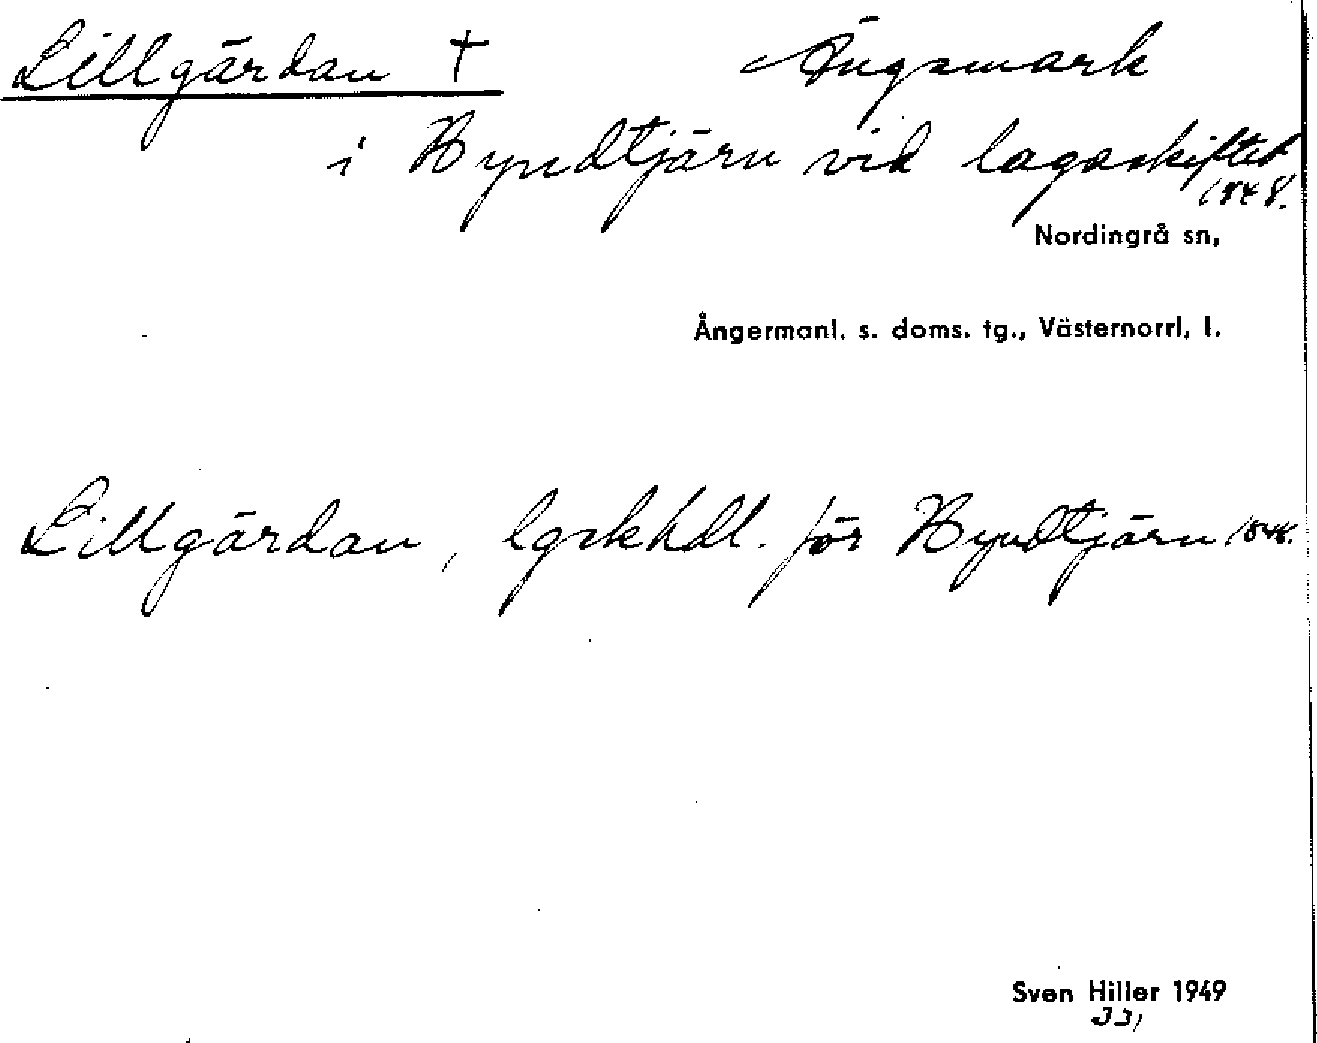 Lillgärdan † Ängsmark
i Hyndtjärn vid lagaskiftet
1848.
Nordingrå sn,
Ångermanl. s. doms. tg., Västernorrl. l.
Lillgärdan, lgskhdl. för Hyndtjärn 1848.
Sven Hiller 1949